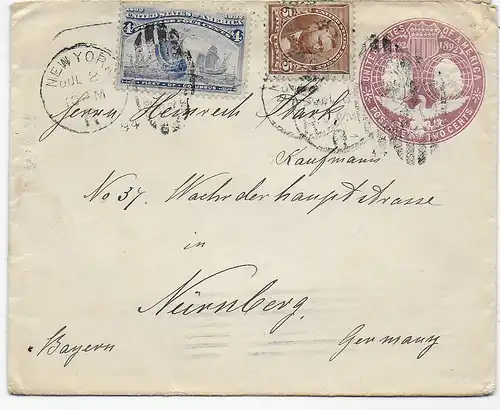 1492 UNITED STATES OF AMERICA 1892
4 4
FLEET OF COLUMBUS
5 5
UNITED STATES OF AMERICA
1892
POSTAGE TWO CENTS
NEW YORK
JUL 2
94
Herrn Heinrich Stark
Kaufmann
No 37. Wachr der hauptstrasse
in
Nürnberg.
Bayern Germany